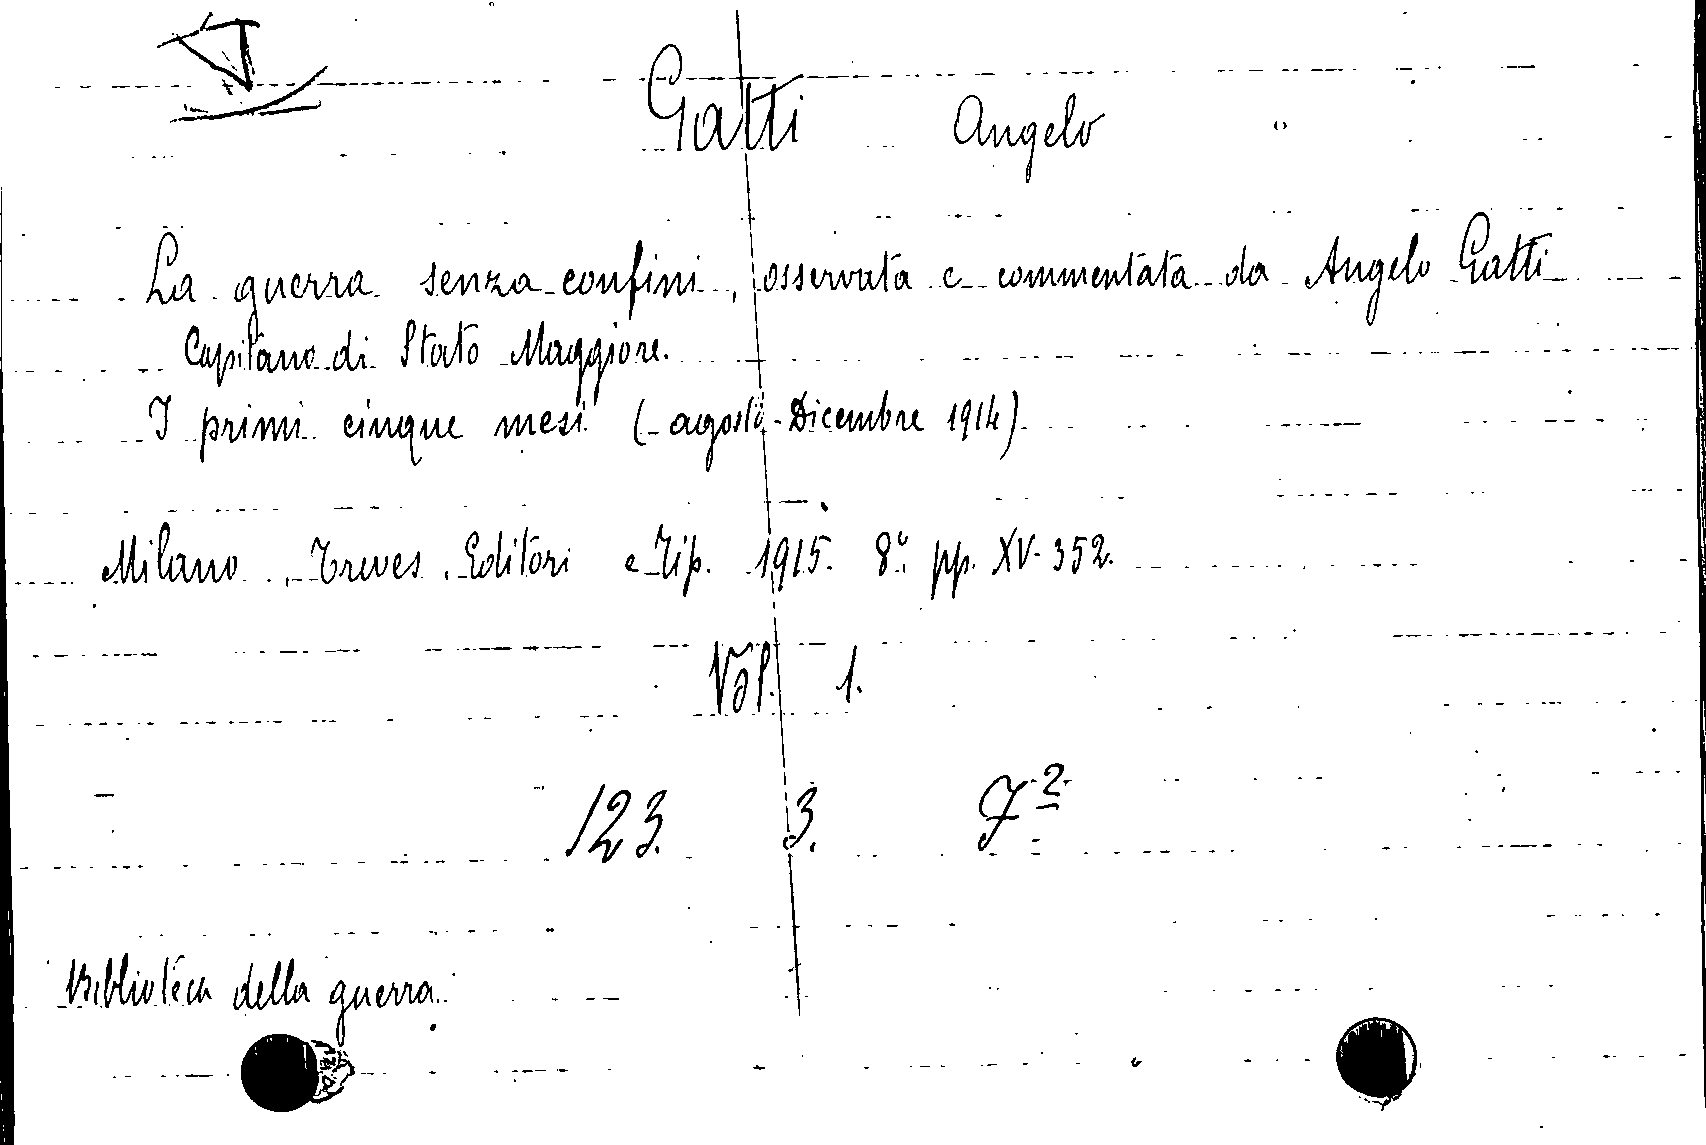 Gatti Angelo
La guerra senza confini, osservata e commentata da Angelo Gatti
Capitano di Stato Maggiore.
I primi cinque mesi (agosto-Dicembre 1914)
Milano, Treves, Editori e Tip. 1915. 8° pp. XV-352.
Vol. 1.
123. 3. F²
Biblioteca della guerra.